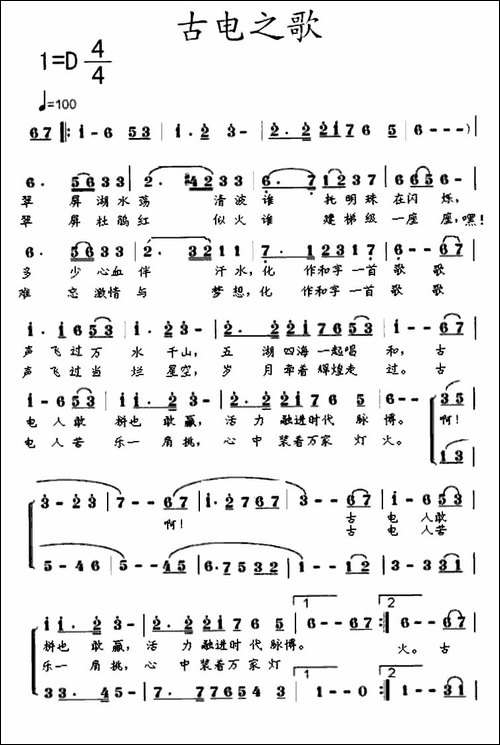 古电之歌
1=D 4/4
♩=100
67 ‖: i - 6 53 | i · 2 3 - | 2 · 2 2i76 5 | 6 - - - )
6 · 5633 | 2 · #4233 | 6 · 7 1237 | 6656 - |
翠 屏湖水荡 清波谁 托明珠在闪烁,
翠 屏杜鹃红 似火谁 建梯级一座座,嘿!
6 · 5633 | 2 · 3211 | 7 · 1 2312 | 6 - - 67 |
多 少心血伴 汗水,化 作和字一首歌 歌
难 忘激情与 梦想,化 作和字一首歌 歌
i · i 6653 | i · 2 3 - | 2 · 2 2i76 5 | 6 - - 67 |
声飞过万 水 千山, 五 湖四海一起唱 和, 古
声飞过当 烂 星空, 岁 月牵着辉煌走 过。古
i - 653 | ii · 2 2 3 - | 2 · 2 2i276 5 | 6 - - 35
电 人敢 也 敢赢, 活 力融进时代 脉 搏。 啊!
电 人苦 乐一 肩挑, 心 中装着万家 灯 火。
13
3 - 23 | 7 - - 67 | i · 2767 | 3 - - 67 | i - 653
啊! 古 电 人敢
古 电 人苦
5 - 46 | 2 - - 45 | 6 · 7532 | 1 - - 12 | 3 - 331
ii · 2 2 3 - | 2 · 2 2i276 5 | 1 6 - - 67 :‖ 2 6 - - 67
也 敢赢, 活 力融进时代脉搏。 火。古
乐一 肩挑, 心 中装着万家灯
33 · 45 - | 7 · 77654 3 | 1 - - 0 :‖ 1 - - 31